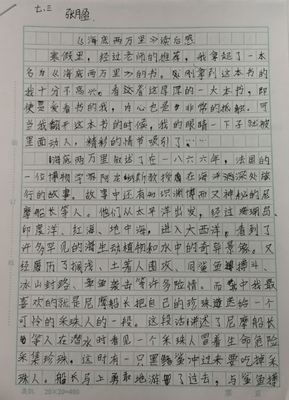 七.三
《海底两万里》读后感
寒假里，经过老师的推荐，我拿起了一本
名为《海底两万里》的书。我刚拿到这本书的
我十分不高兴。看这着这厚厚的一大本书，即
使是爱看书的我，内心也是非常的抵触。可
当我翻开这本书的时候，我的眼睛一下子就被
里面动人，精彩的情节吸引了。
《海底两万里》叙述了在一八六六年，法国的
一位博物学
旅行的故事。故事中还有知识渊博而又神秘的尼
摩船长等人。他们从太平洋出发，经过珊瑚岛、
印度洋、红海、地中海，进入大西洋，看到了
许多罕见的海生动植物和水中的奇异景象。又
经历了搁浅、土著人围攻、同鲨鱼搏斗、
冰山封路、章鱼袭击等许多险情。而其中我最
喜欢的就是尼摩船长把自己的珍珠送给一个
可怜的采珠人的一段。这段话讲述了尼摩船长
等人在潜水时看见一个采珠人冒着生命危险
采集珍珠。这时有一只黑鲨鱼冲过来要吃掉采
珠人。船长马上勇敢地游了过去，与鲨鱼搏
20×20=400